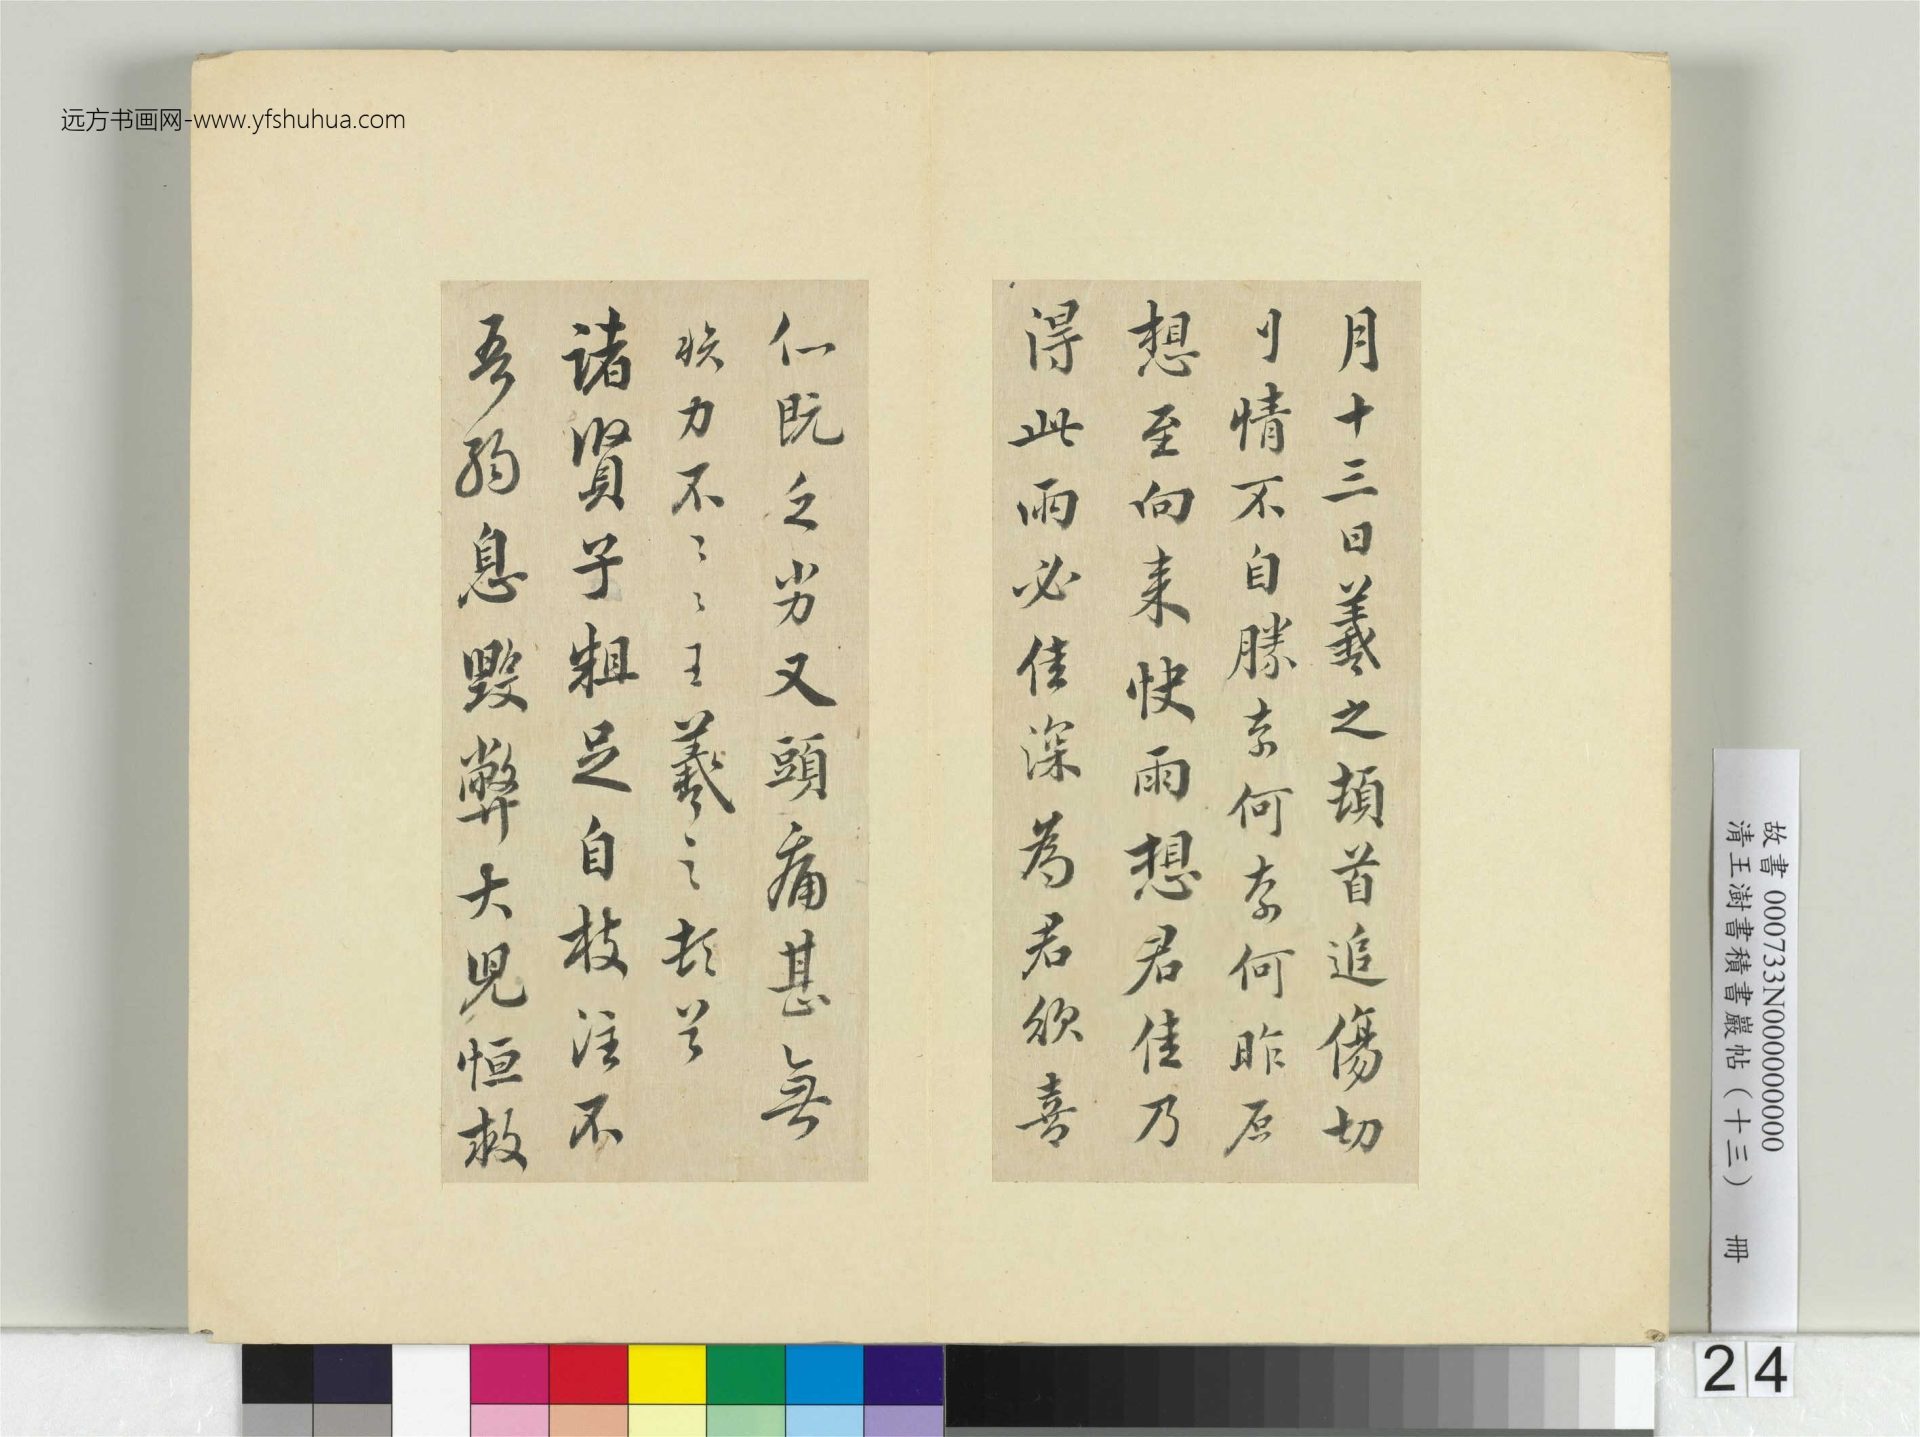 远方书画网-www.yfshuhua.com
月十三日羲之頓首追傷切
刂情不自勝奈何奈何昨
想至向来快雨想君佳乃
得此雨必佳深為君欣喜
仁既乏劣又頭痛甚無
力不〻〻王羲之頓首
諸賢子粗足自枝注不
吾弱息毀弊大児恒救
故書 000733N000000000
清王澍書積書巖帖（十三） 冊
24